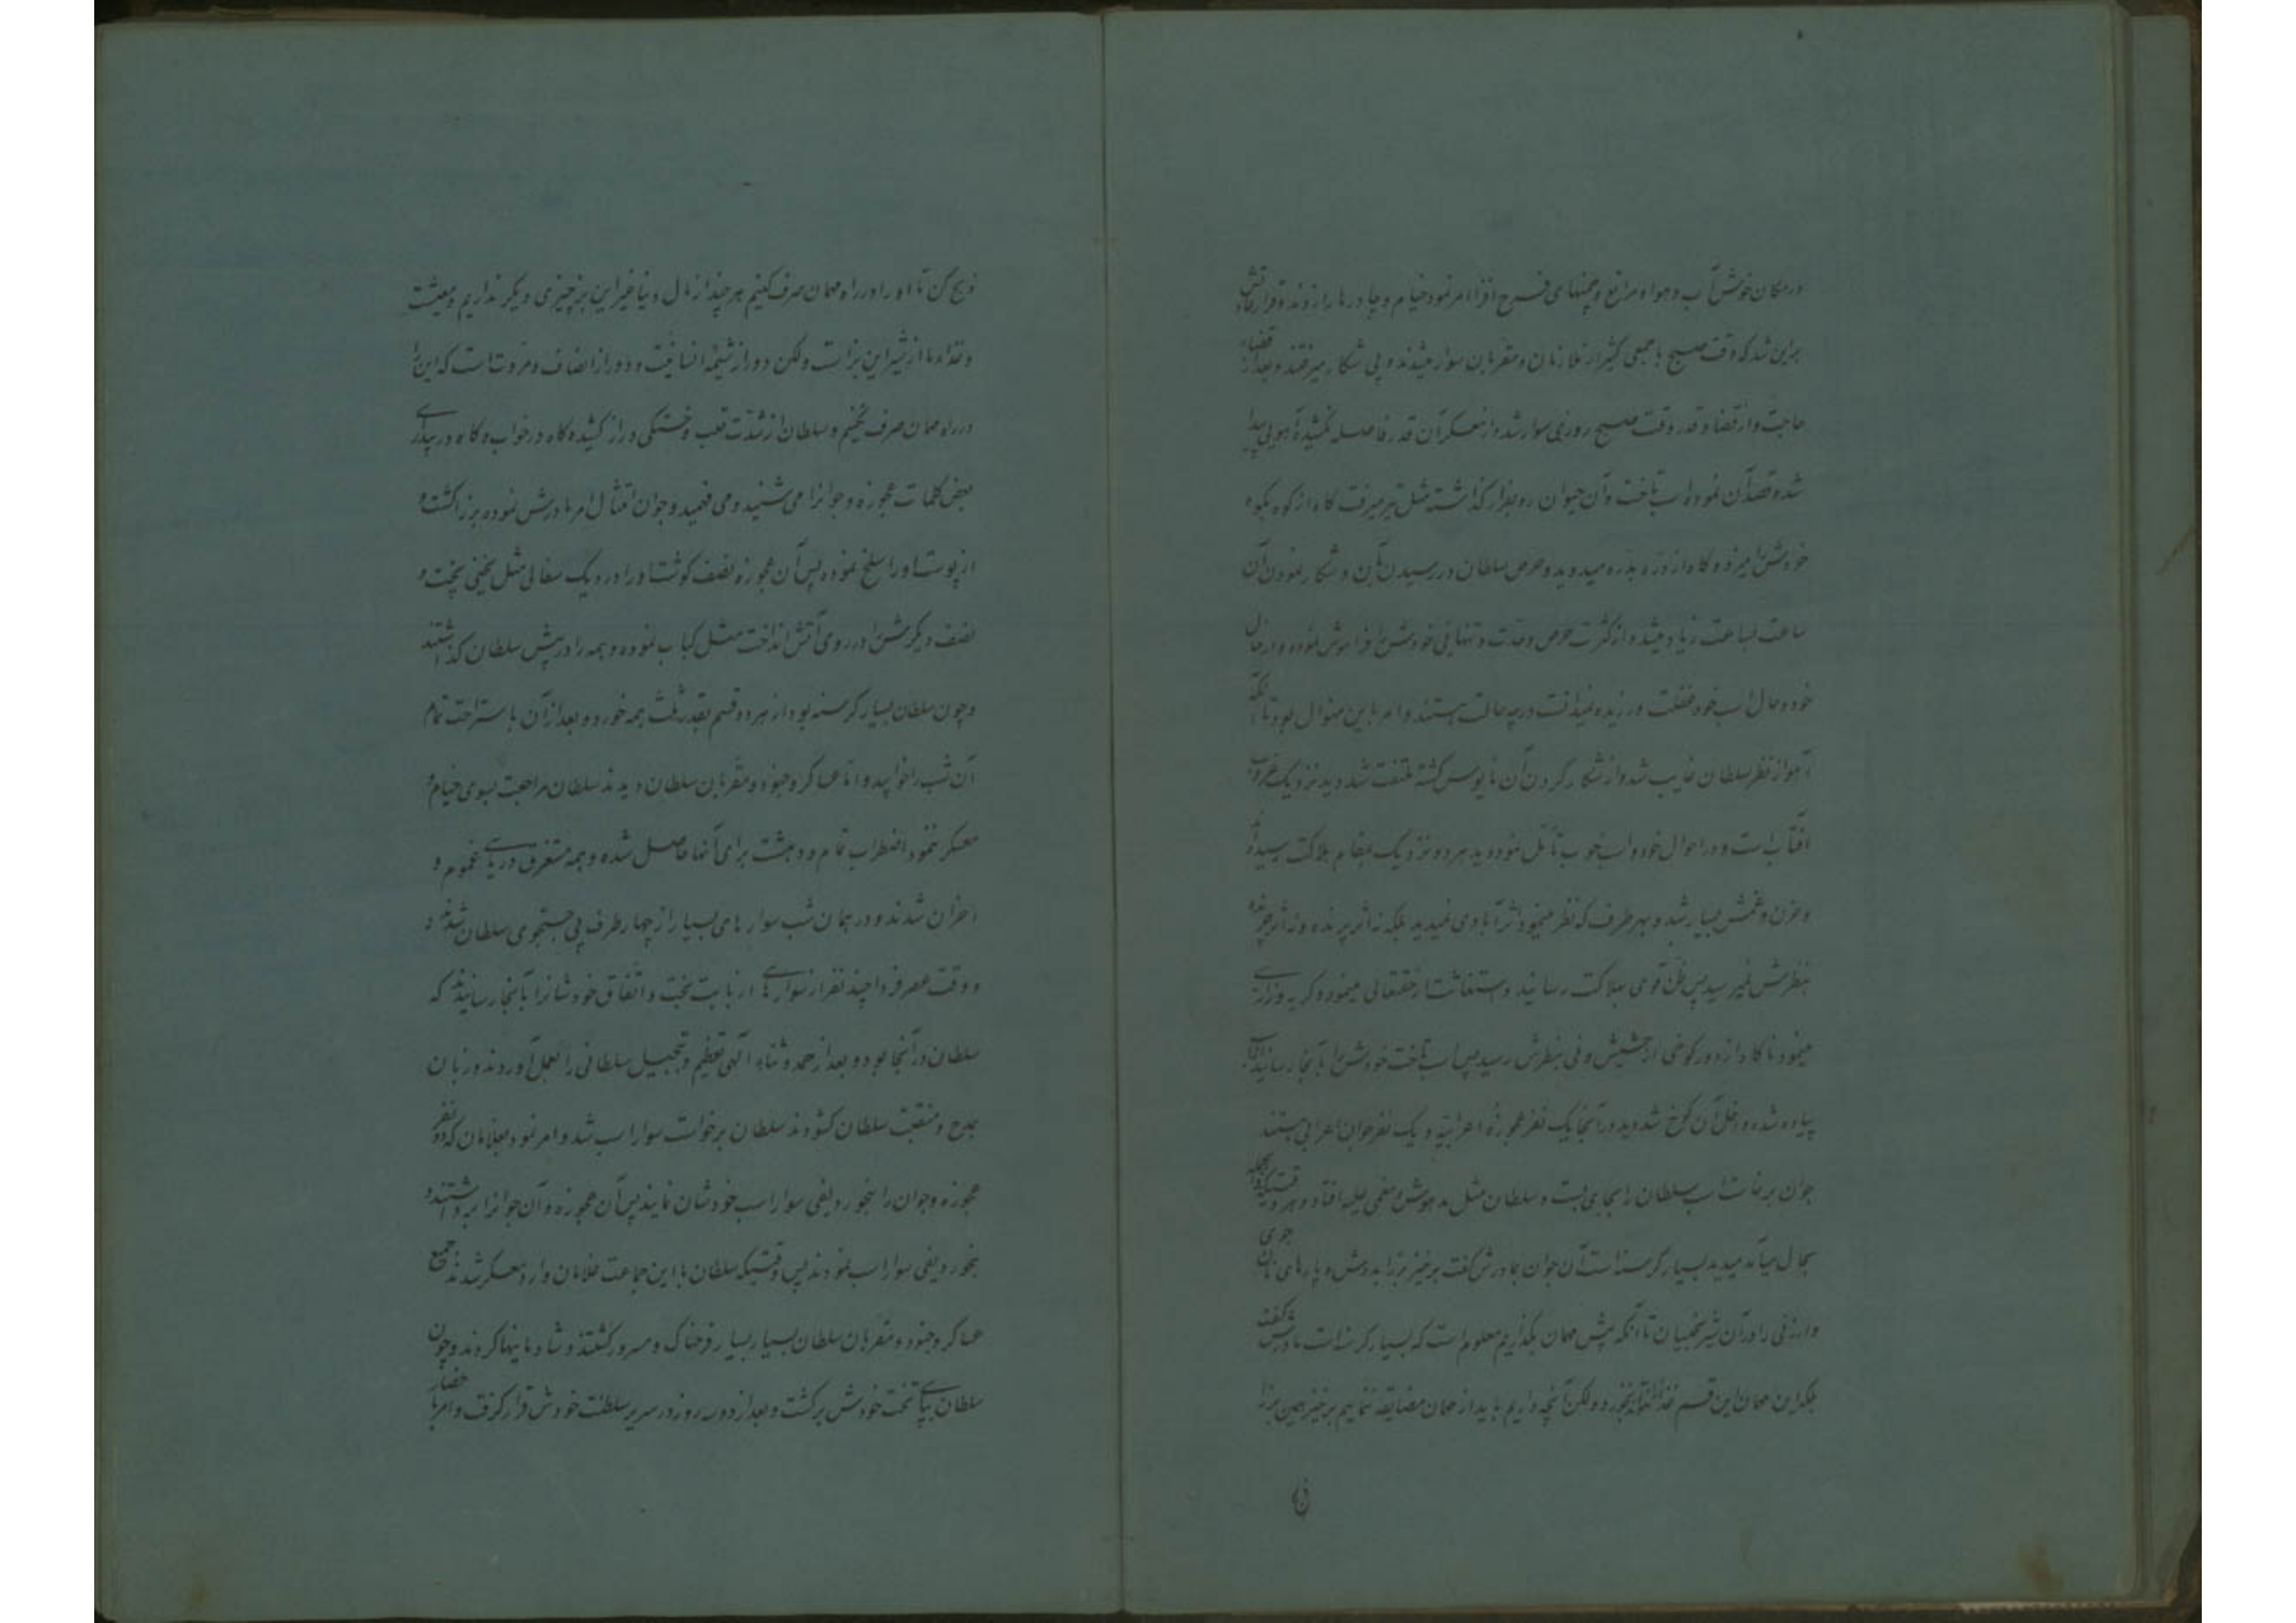 در مکان خوش آب و هوا و مراتع و چمنهای فرح افزا امر نمود خیام و چادرها را زدند و قرار
براین شد که وقت صبح با جمعی کثیر از ملازمان و مقربان سوار میشدند و پی شکار میرفتند و بعد از قضاء
حاجت و از قضا و قدر وقت صبح روزی سوار شد و از معسکر آن قدر فاصله نکشید آهویی پیدا
شد و قصد آن نموده اسب تاخت و آن حیوان رو بفرار گذاشته مثل تیر میرفت گاه از کوه بکوه
خودش را میزد و گاه از دره بدره میدوید و حرص سلطان در رسیدن بآن و شکار نمودن آن
ساعت بساعت زیاد میشد و از کثرت حرص وحدت و تنهایی خودش را فراموش نموده و از حال
خود و حال اسب خود غفلت ورزیده نمیدانست در چه حالت هستند و امر باین منوال بود تا آنکه
آهو از نظر سلطان غایب شد و از شکار کردن آن مایوس گشته ملتفت شد دید نزدیک غروب
آفتاب است و در احوال خود و اسب خوب تأمل نمود دید هر دو نزدیک بمقام هلاکت رسیده
و حزن و غمش بسیار شد و بهر طرف که نظر مینمود اثر آبادی نمیدید بلکه نه اثر پرنده و نه اثر چرنده
بنظرش نمیرسید پس ظن قوی بهلاکت رسانید و استغاثت از حقتعالی مینمود و گریه وزاری
مینمود ناگاه از دور کوخی از حشیش و نی بنظرش رسید پس اسب تاخت خودش را بآنجا رسانید از اسب
پیاده شده داخل آن کوخ شد دید در آنجا یک نفر عجوزهٔ اعرابیه و یک نفر جوان اعرابی هستند
جوان برخاست اسب سلطان را بجایی بست و سلطان مثل مدهوش و مغمی علیه افتاد و هر وقتیکه
بحال میآمد میدید بسیار گرسنه است آن جوان بمادرش گفت برخیز بز را بدوش و پارهای نان جوی
وارزنی را در آن شیر بخیسان تا آنکه پیش مهمان بگذاریم معلوم است که بسیار گرسنه است مادرش گفت
بلکه این مهمان این قسم غذا نخورد ولکن آنچه داریم باید از مهمان مضایقه ننماییم برخیز همین بز را
ذبح کن تا او را در راه مهمان صرف کنیم هر چند از مال دنیا غیر این بز چیزی دیگر نداریم و معیشت
و غذاء ما از شیر این بز است ولکن دور از شیمهٔ انسانیت و دور از انصاف و مروت است که این را
در راه مهمان صرف نکنیم و سلطان از شدت تعب و خستگی دراز کشیده گاه در خواب و گاه در بیداری
بعض کلمات عجوزه و جوانرا می شنید و می فهمید و جوان امتثال امر مادرش نموده بز را کشت و
از پوست او را سلخ نموده پس آن عجوزه نصف گوشت او را در دیک سفالی مثل یخنی پخت و
نصف دیگرش را در روی آتش انداخت مثل کباب نموده و همه را در پیش سلطان گذاشتند
و چون سلطان بسیار گرسنه بود از هر دو قسم بقدر ثلث همه خورد و بعد از آن با ستراحت تمام
آن شب را خوابید و اما عساکر و جنود و مقربان سلطان دیدند سلطان مراجعت بسوی خیام و
معسکر ننمود اضطراب تمام و دهشت برای آنها حاصل شده و همه مستغرق دریای غموم و
احزان شدند و در همان شب سوارهای بسیار از چهار طرف پی جستجوی سلطان شدند و
و وقت عصر فردا چند نفر از سوارها از بابت بخت و اتفاق خودشانرا بآنجا رسانیدند که
سلطان در آنجا بود و بعد از حمد و ثناء الهی تعظیم و تبجیل سلطانی را بعمل آوردند و زبان
بمدح و منقبت سلطان گشودند سلطان برخواست سوار اسب شد و امر نمود بغلامان که دو نفر
عجوزه و جوان را بنحو ردیفی سوار اسب خودشان نمایند پس آن عجوزه و آن جوانرا برداشتند و
بنحو ردیفی سوار اسب نمودند پس وقتیکه سلطان با این جماعت غلامان وارد معسکر شدند جمیع
عساکر و جنود و مقربان سلطان بسیار بسیار فرحناک و مسرور گشتند و شادمانیها کردند و چون
سلطان بپای تخت خودش برگشت و بعد از دو سه روز در سریر سلطنت خودش قرار گرفت و امر باحضار